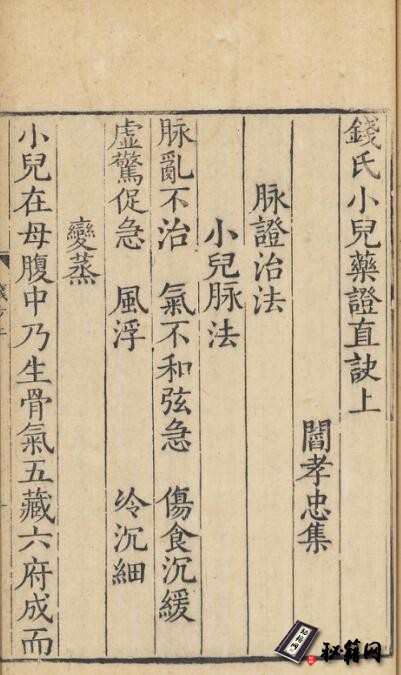 錢氏小兒藥證直訣上
閻孝忠集
脉證治法
小兒脉法
脉亂不治 氣不和弦急 傷食沉緩
虛驚促急 風浮 冷沉細
變蒸
小兒在母腹中乃生骨氣五藏六府成而
秘籍网